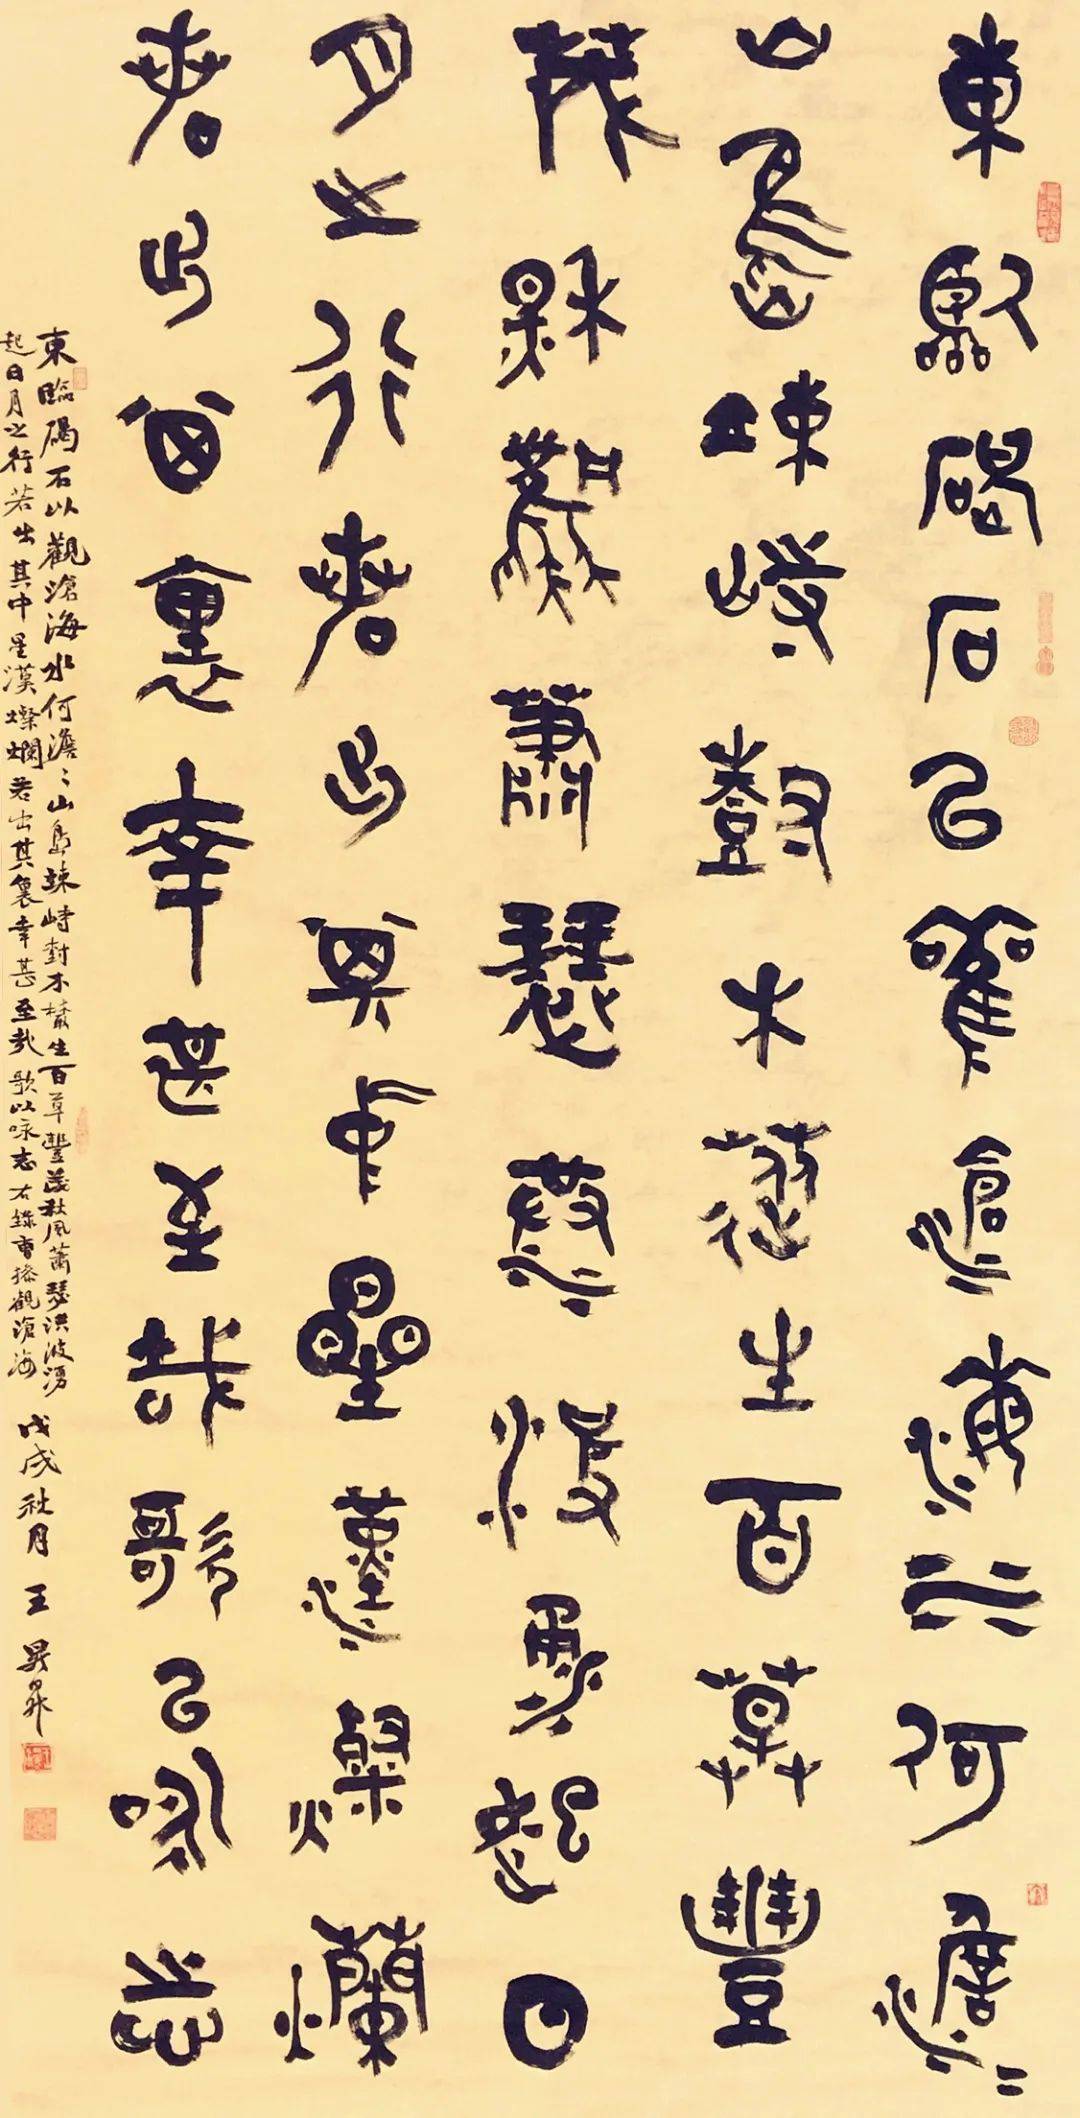 東臨碣石以觀滄海水何澹=
山島竦峙樹木叢生百草豐
茂秋風蕭瑟洪波湧起日
月之行若出其中星漢燦爛
若出其裏幸甚至哉歌以詠志
東臨碣石以觀滄海水何澹〻山島竦峙樹木叢生百草豐茂秋風蕭瑟洪波湧
起日月之行若出其中星漢燦爛若出其裏幸甚至哉歌以咏志右錄曹操觀滄海
戊戌秋月王